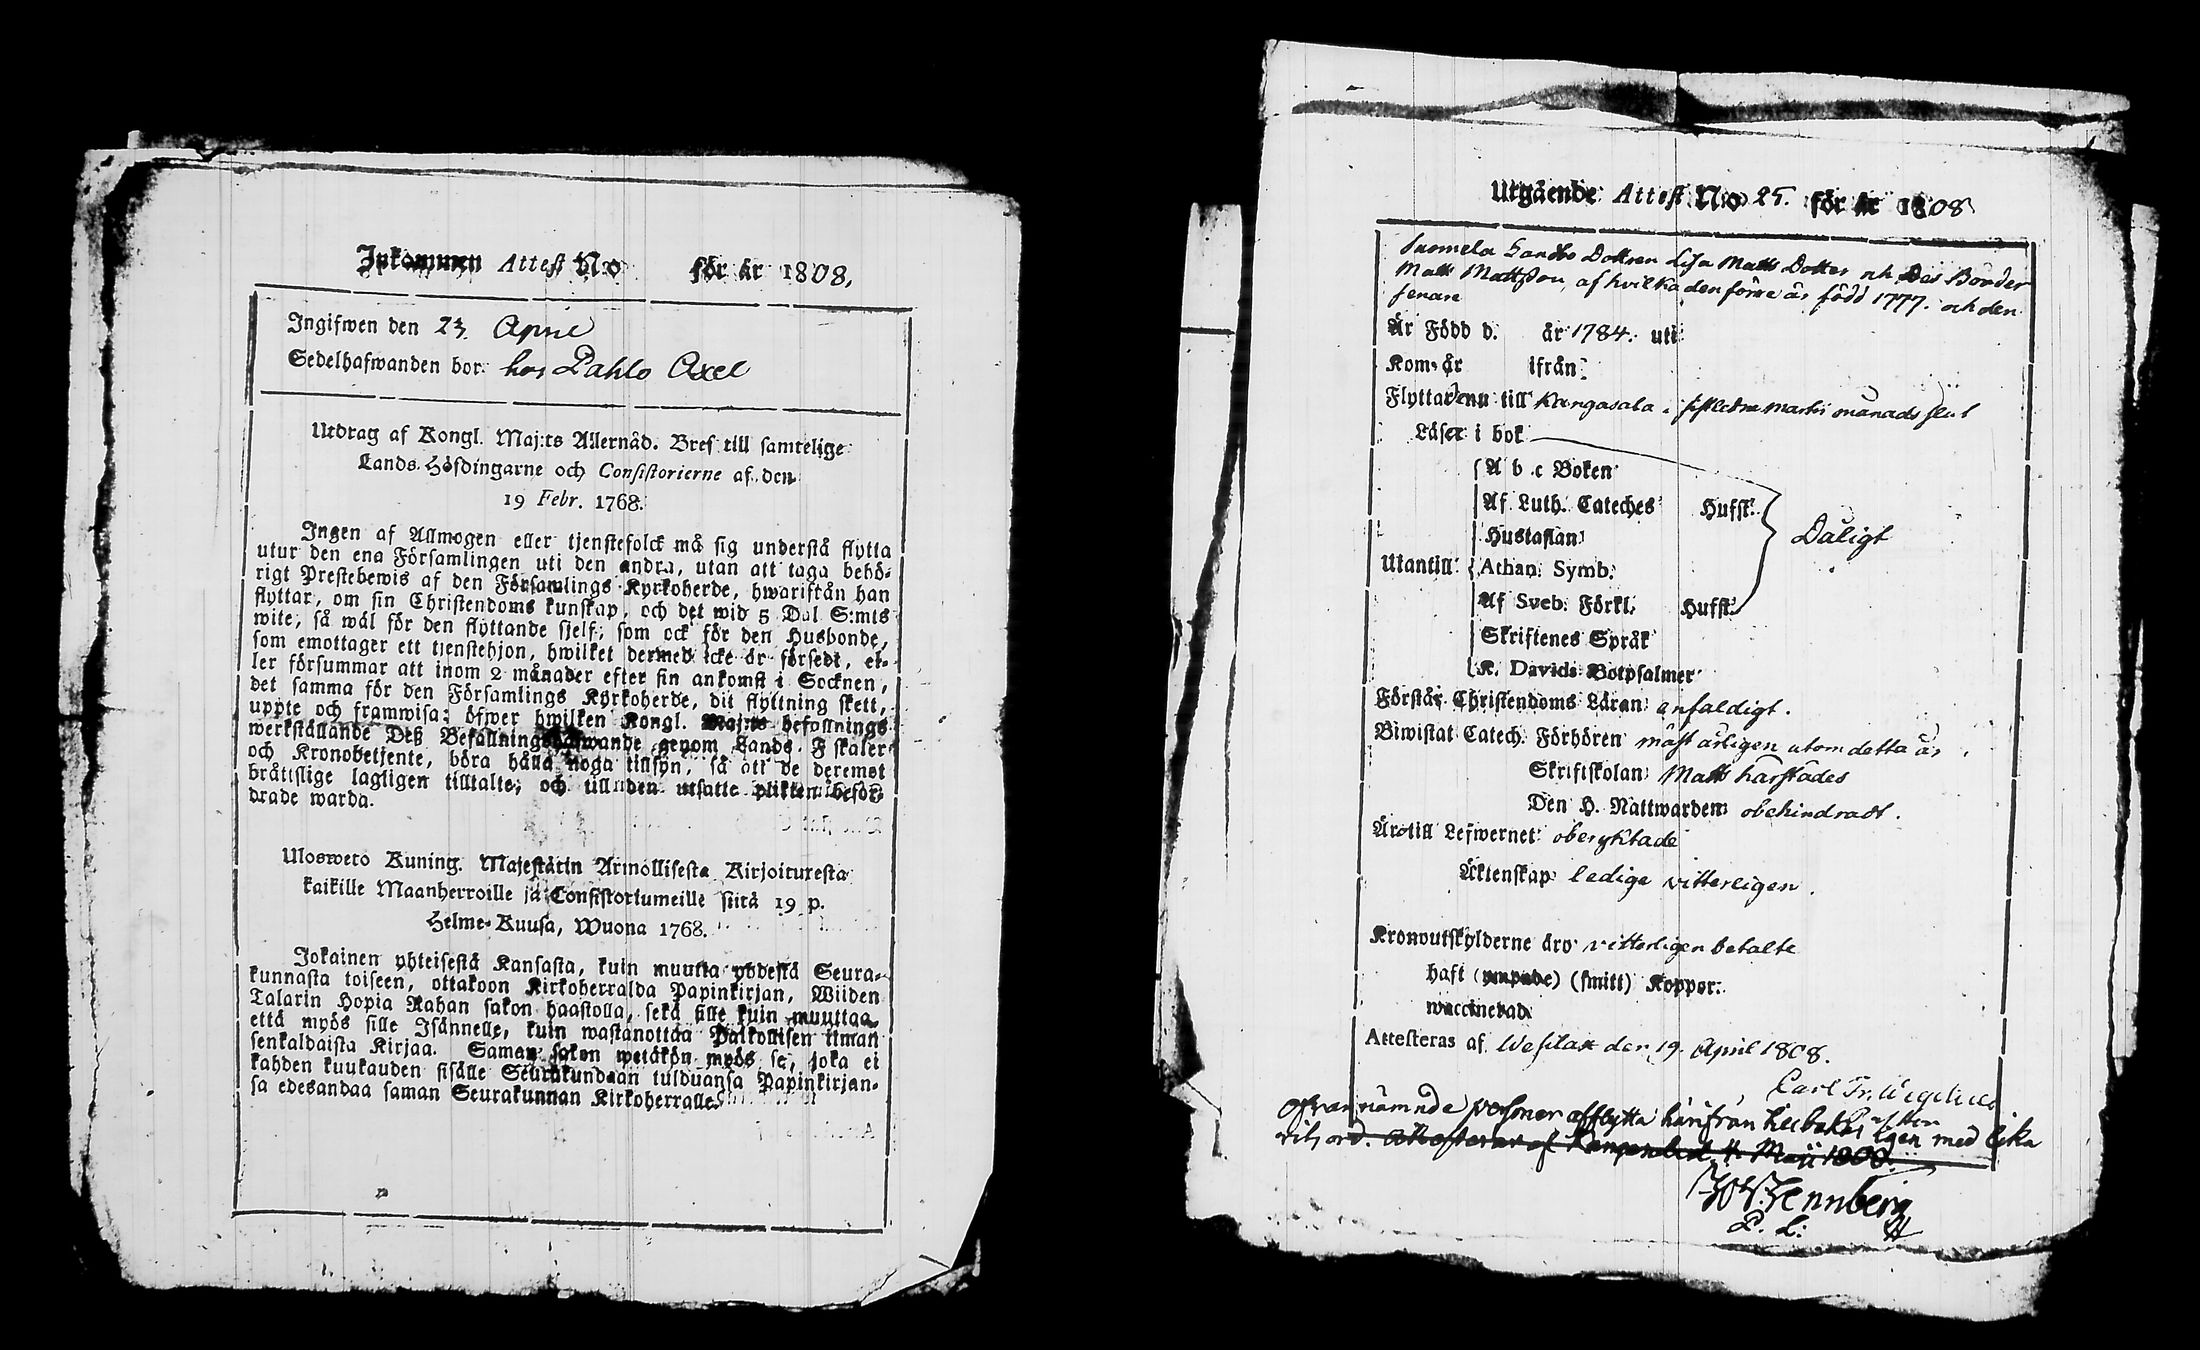 Inkommen Attest No för år 1808.
Ingifwen den 23. April
Sedelhafwanden bor hos Pahlo Axel
Utdrag af Kongl. Maj:ts Allernåd. Bref till samtelige
Lands-Höfdingarne och Consistorierne af den
19 Febr. 1768.
Ingen af Allmogen eller tjenstefolck må sig understå flytta
utur den ena Församlingen uti den andra, utan att taga behö-
rigt Prestebewis af den Församlings Kyrkoherde, hwarifrån han
flyttar, om sin Christendoms kunskap, och det wid 5 Dal S:mts
wite, så wäl för den flyttande sjelf, som ock för den Husbonde,
som emottager ett tjenstehjon, hwilket dermed icke är försedt, el-
ler försummar att inom 2 månader efter sin ankomst i Socknen,
det samma för den Församlings Kyrkoherde, dit flyttning skett,
uppte och framwisa; öfwer hwilken Kongl. Maj:ts befallnings
werkställande Deß Befallningshafwande genom Lands F skaler
och Kronobetjente, böra hålla noga tillsyn, så att de deremot
bråttslige lagligen tilltalte, och till den utsatte plikten befor-
drade warda.
Ulosweto Kuning. Majestätin Armollisesta Kirjoituresta
kaikille Maanherroille ja Consistoriumeille siitä 19 p.
Helme-Kuusa, Wuona 1768.
Jokainen yhteisestä Kansasta, kuin muutta yhdestä Seura-
kunnasta toiseen, ottakoon Kirkoherralda Papinkirjan, Wiiden
Talarin Hopia Rahan sakon haastolla, sekä sille kuin muuttaa,
että myös sille Isännelle, kuin wastanottaa Palkollisen ilman
senkaldaista Kirjaa. Saman sakon wetäkön myös se, joka ei
kahden kuukauden sisälle Seurakundaan tulduansa Papinkirjan-
sa edesandaa saman Seurakunnan Kirkoherralle.
Utgående Attest No 25. för år 1808
Suomela Lands Dottren Lisa Matts Dotter och Des Broder
Matts Mattsson, af hvilka den förre är född 1777. och den
senare
År Född d. år 1784. uti
Kom år ifrån
Flytta nu till Kangasala i sistledne martii månads slut
Läser i bok
A b c Boken
Af Luth. Cateches Hufst.
Hustaflan Dåligt
Utantill Athan. Symb.
Af Sveb. Förkl. Hufst.
Skriftenes Språk
K. Davids Botpsalmer
Förstår Christendoms Läran enfaldigt.
Biwistat Catech. Förhören mäst årligen utom detta år
Skriftskolan Matts
Den H. Nattwarden obehindradt.
Äro till Lefwernet oberyktade
Äktenskap ledige vitterligen.
Kronoutskylderne äro vitterligen betalte
haft (ympade) (smitt) Koppor.
waccinerad
Attesteras af Wesilax den 19. April 1808.
Carl Fr. Wegelius
Ofvannämnde personer afflytta härifrån tillbakas igen med lika
vitsord. Attesteras af Kangasala d. 4 Maji 1808.
Tennberg
P. L: